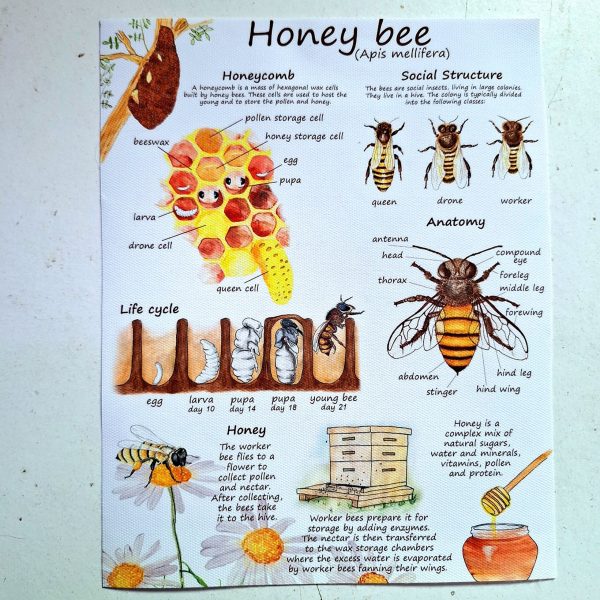 Honey bee
(Apis mellifera)
Honeycomb
A honeycomb is a mass of hexagonal wax cells
built by honey bees. These cells are used to host the
young and to store the pollen and honey.
Social Structure
The bees are social insects, living in large colonies.
They live in a hive. The colony is typically divided
into the following classes:
pollen storage cell
honey storage cell
beeswax
egg
pupa
larva
drone cell
queen cell
queen
drone
worker
Anatomy
antenna
head
thorax
compound
eye
foreleg
middle leg
forewing
abdomen
stinger
hind leg
hind wing
Life cycle
egg
larva
day 10
pupa
day 14
pupa
day 18
young bee
day 21
Honey
The worker
bee flies to a
flower to
collect pollen
and nectar.
After collecting,
the bees take
it to the hive.
Worker bees prepare it for
storage by adding enzymes.
The nectar is then transferred
to the wax storage chambers
where the excess water is evaporated
by worker bees fanning their wings.
Honey is a
complex mix of
natural sugars,
water and minerals,
vitamins, pollen
and protein.